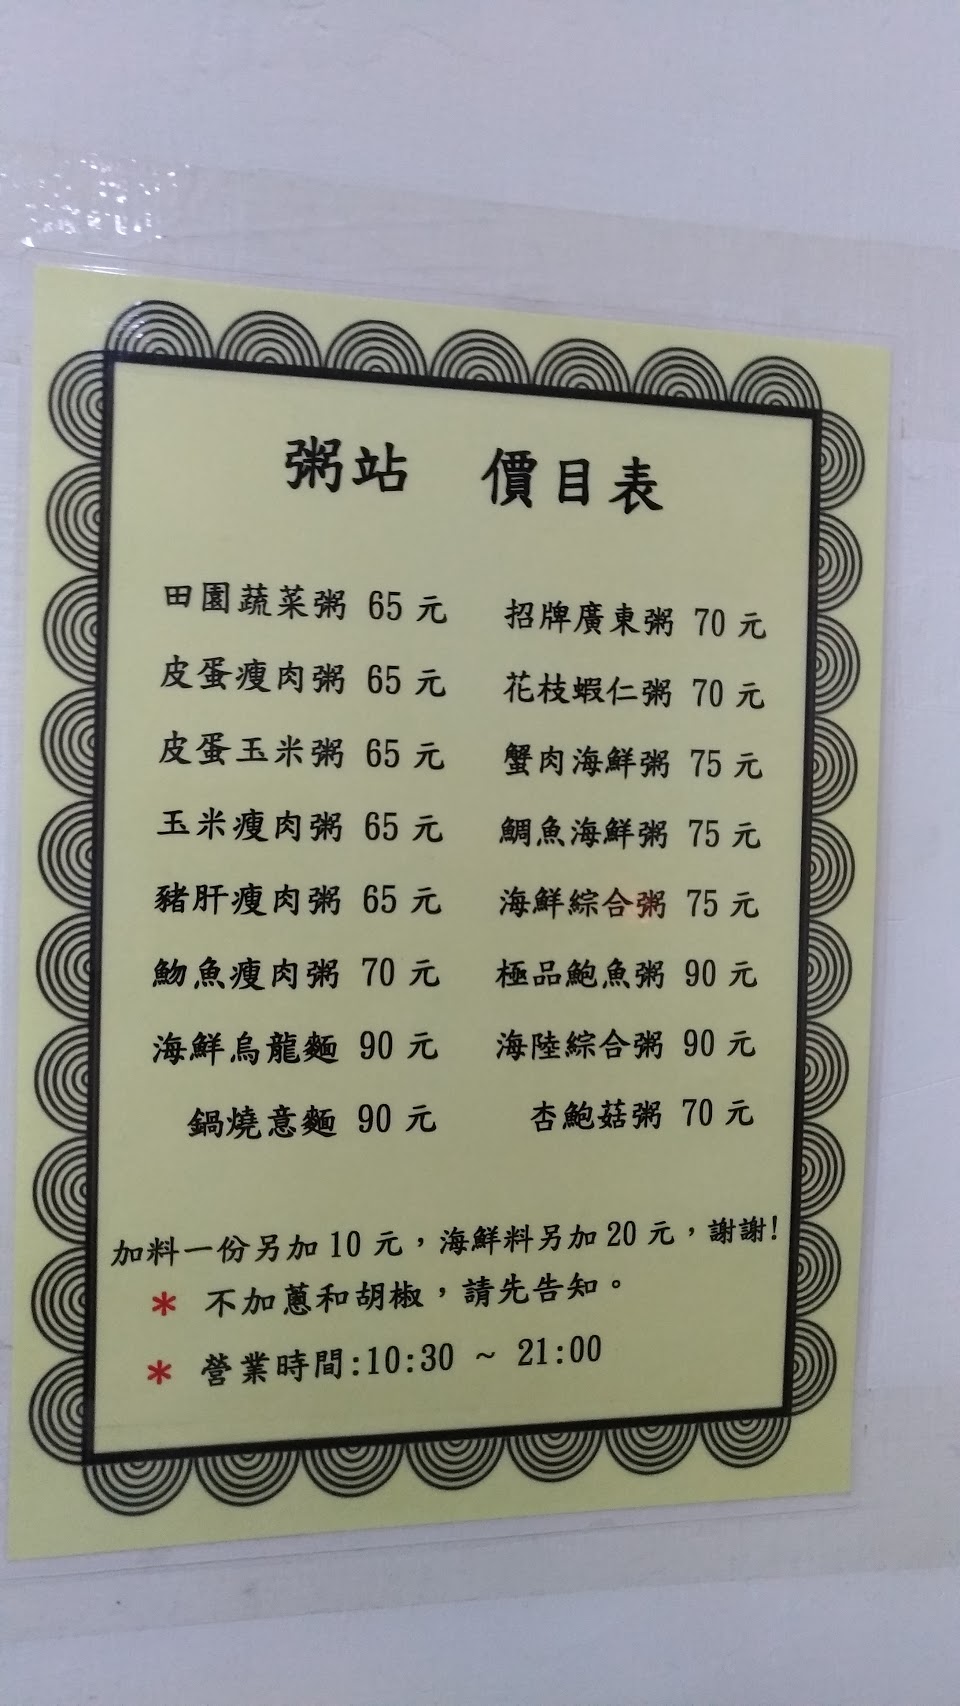 粥站 價目表
田園蔬菜粥 65 元
皮蛋瘦肉粥 65 元
皮蛋玉米粥 65 元
玉米瘦肉粥 65 元
豬肝瘦肉粥 65 元
魩魚瘦肉粥 70 元
海鮮烏龍麵 90 元
鍋燒意麵 90 元
招牌廣東粥 70 元
花枝蝦仁粥 70 元
蟹肉海鮮粥 75 元
鯛魚海鮮粥 75 元
海鮮綜合粥 75 元
極品鮑魚粥 90 元
海陸綜合粥 90 元
杏鮑菇粥 70 元
加料一份另加 10 元，海鮮料另加 20 元，謝謝!
* 不加蔥和胡椒，請先告知。
* 營業時間:10:30 ~ 21:00